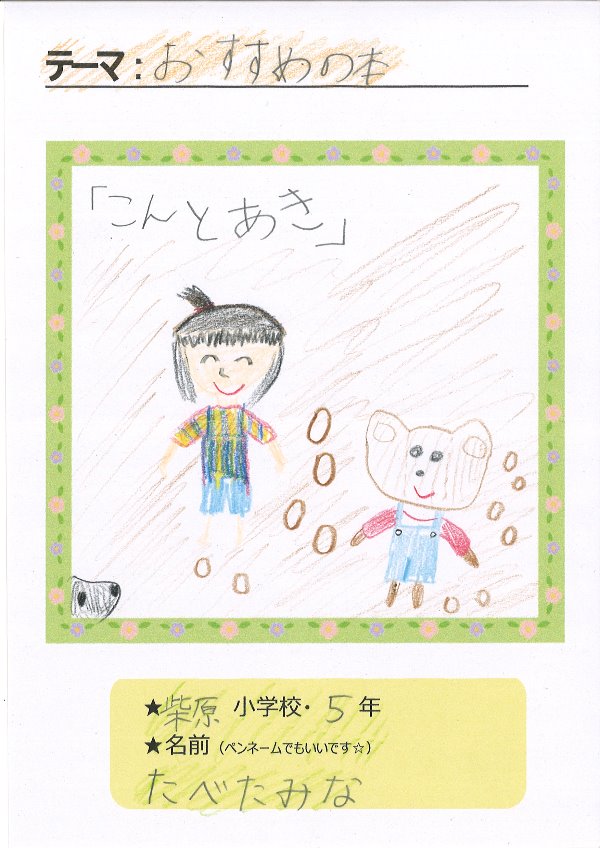 テーマ：おすすめのも
「こんとあき」
★柴原 小学校・5年
★名前（ペンネームでもいいです☆）
たべたみな